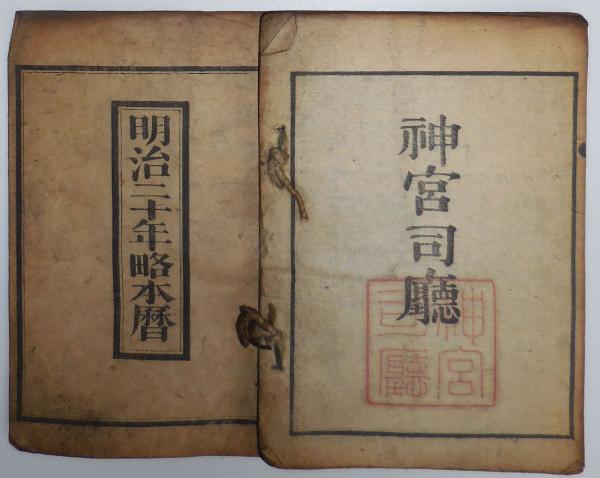 神宮司廳
神宮
司廳
明治二十年略本暦